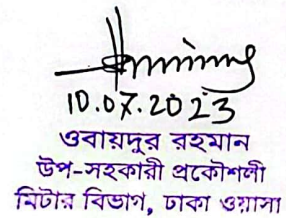 10.07.2023
ওবায়দুর রহমান
উপ-সহকারী প্রকৌশলী
মিটার বিভাগ, ঢাকা ওয়াসা